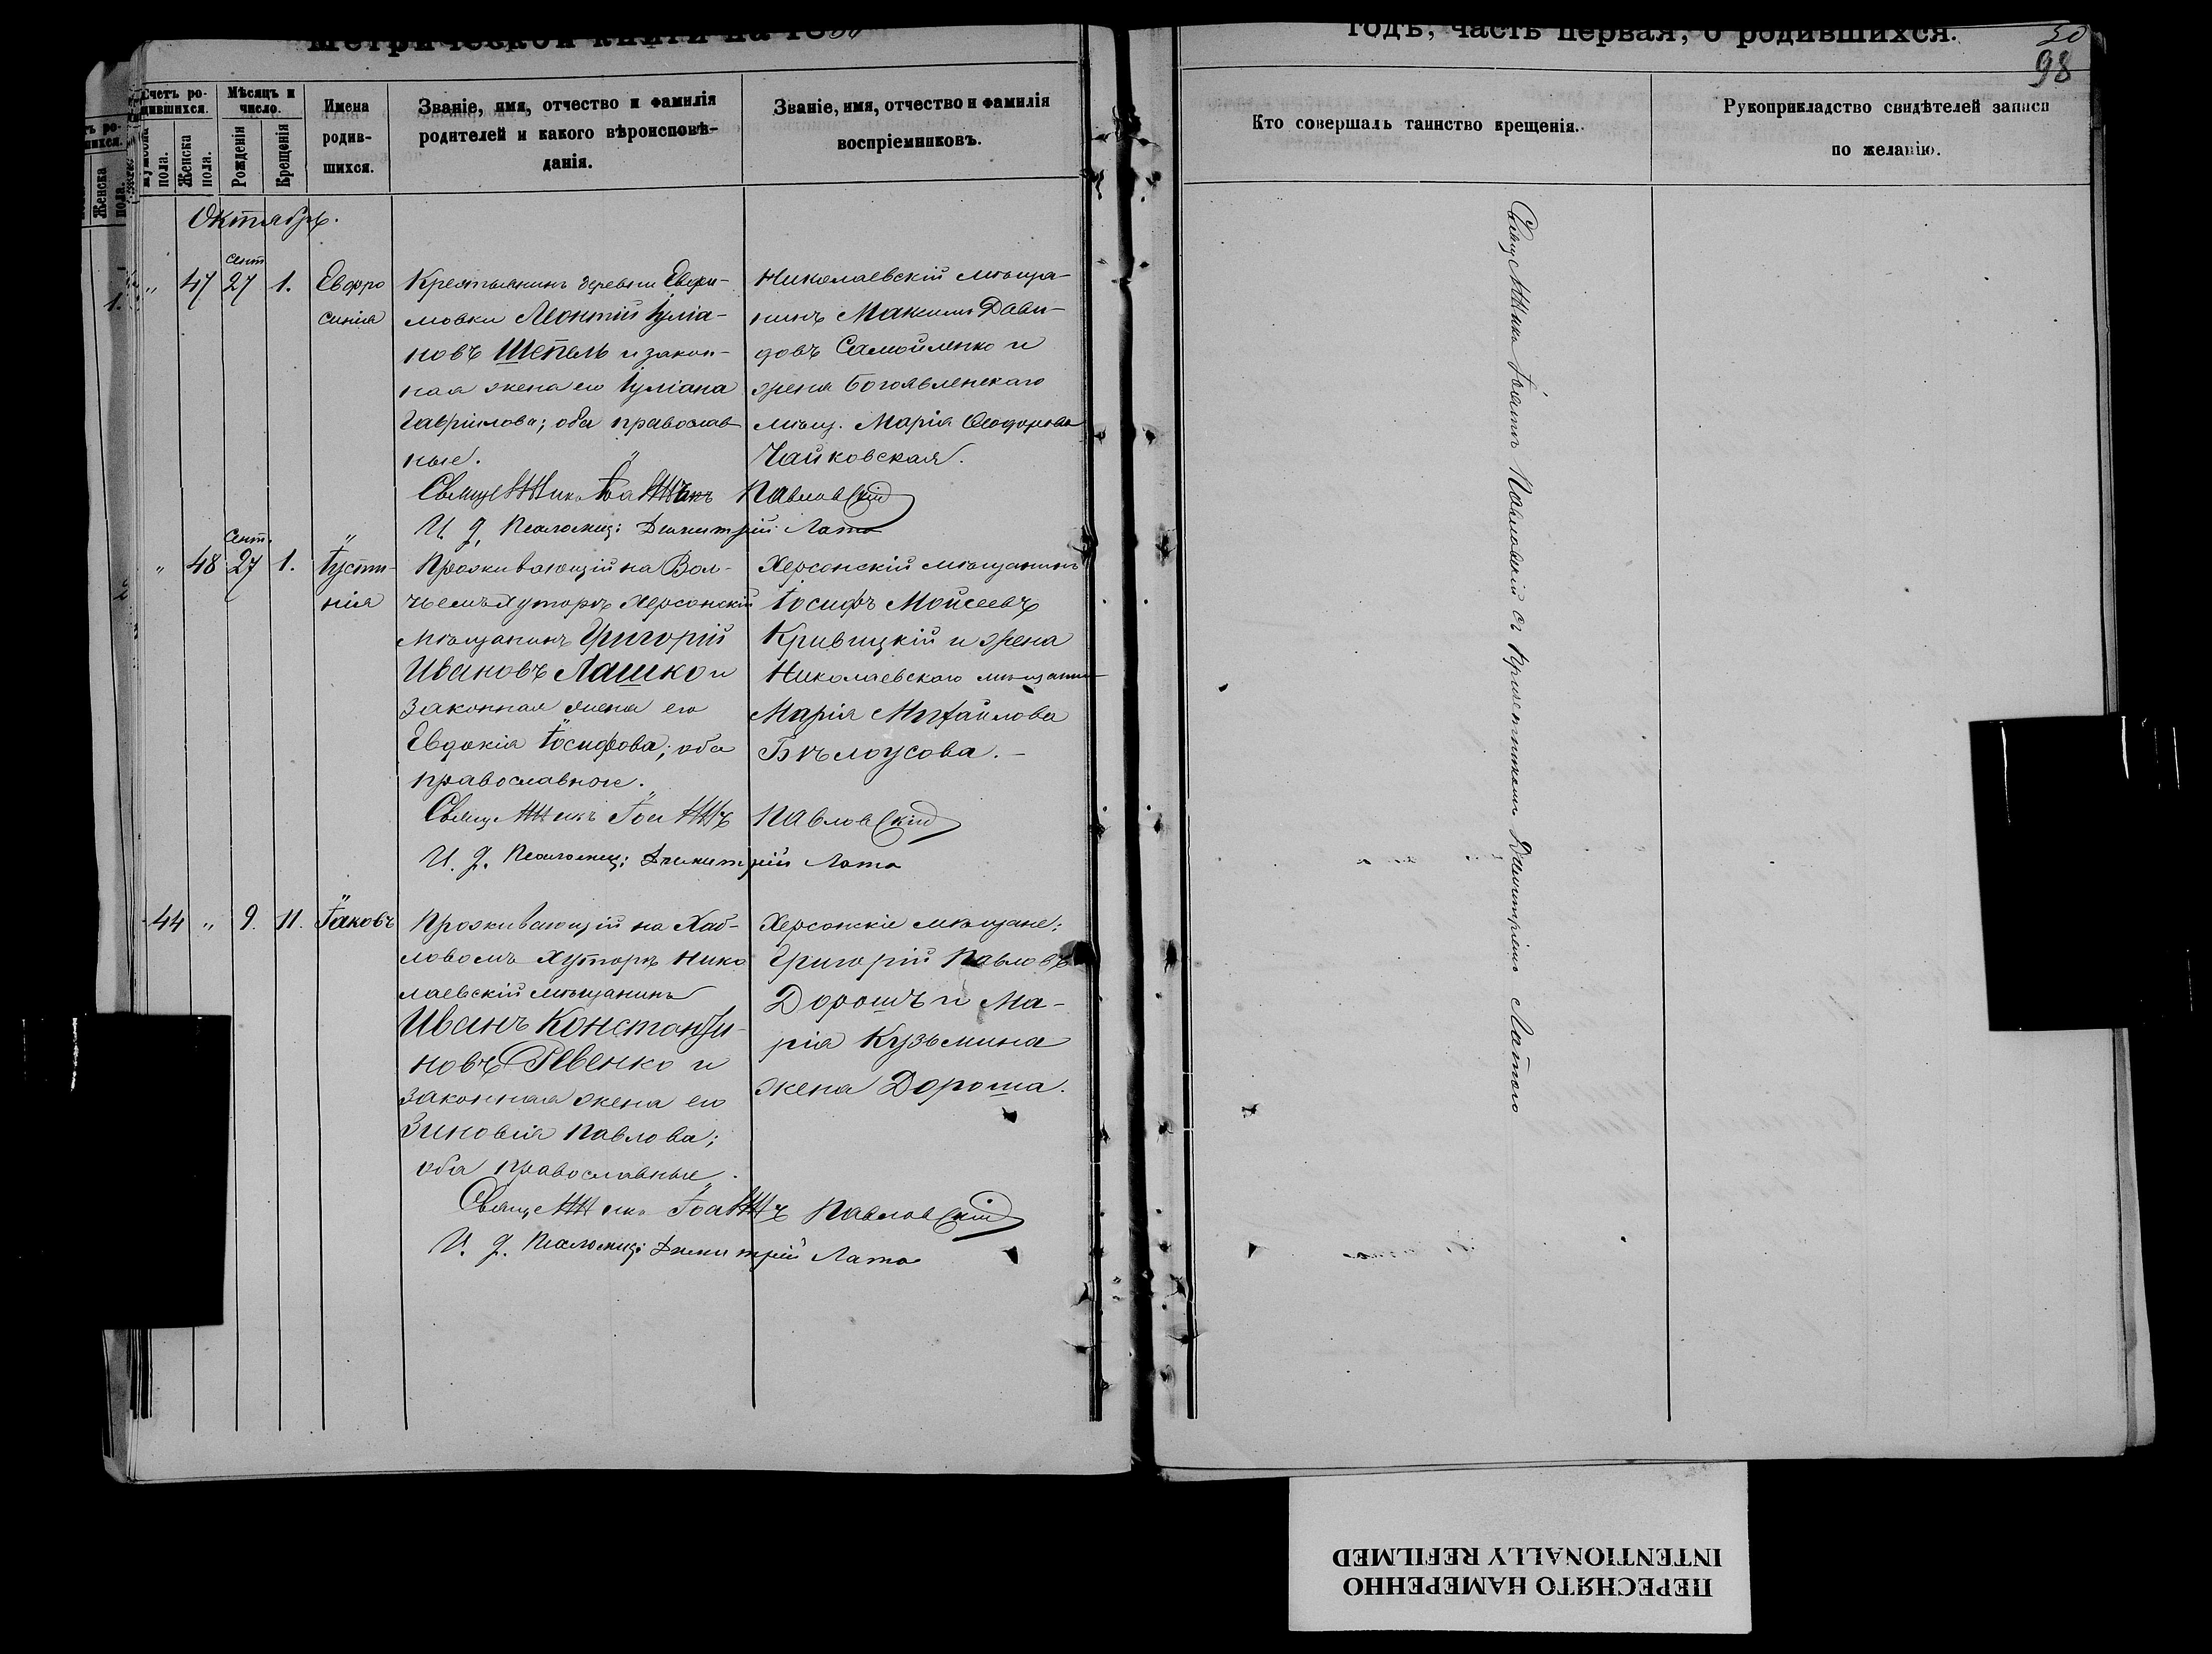 Метрической книги на 18
годъ, часть первая, о родившихся.
50
98
Счетъ ро-
дившихся.
Мужска
пола.
Женска
пола.
Мѣсяцъ и
число.
Рожденія
Крещенія
Имена
родив-
шихся.
Званіе, имя, отчество и фамилія
родителей и какого вѣроисповѣ-
данія.
Званіе, имя, отчество и фамилія
воспріемниковъ.
Кто совершалъ таинство крещенія.
Рукоприкладство свидѣтелей записи
по желанію.
Октябрь.
сент
" 47 27 1. Евфро
синія
Крестьянинъ деревни Евфи-
мовки Леонтій Іуліа-
новъ Шепель и закон-
ная жена его Іуліана
Гавріилова; оба православ
ные.
Николаевскій мѣща-
нинъ Максимъ Дави-
довъ Самойленко и
жена Богоявленскаго
мѣщ. Марія Ѳеодорова
Чайковская.
Священникъ Іоаннъ Павловскій
И. д. Псаломщ: Димитрій Лата
Сент.
" 48 27 1. Іусти-
нія
Проживающій на Вол-
чьемъ хуторѣ Херсонскій
мѣщанинъ Григорій
Ивановъ Лашко и
законная жена его
Евдокія Іосифова; оба
православные.
Херсонскій мѣщанинъ
Іосифъ Моисеевъ
Кривицкій и жена
Николаевского мѣщанин
Марія Михайлова
Бѣлоусова. –
Священникъ Іоаннъ Павловскій
И. д. Псаломщ: Димитрій Лата
44 " 9. 11. Іаковъ
Проживающій на Хаб-
ловомъ хуторѣ Нико
лаевскій мѣщанинъ
Иванъ Константи-
новъ Ревенко и
законная жена его
Зиновія Павлова;
оба православные.
Херсонскіе мѣщане:
Григорій Павловъ
Дорошъ и Ма-
рія Кузьмина
жена Дороша.
Священникъ Іоаннъ Павловскій
И. д. Псаломщ: Димитрій Лата
Священника Іоаннъ Павловскій съ Причетникомъ Димитріемъ Латого
ПЕРЕСНЯТО НАМЕРЕННО
INTENTIONALLY REFILMED